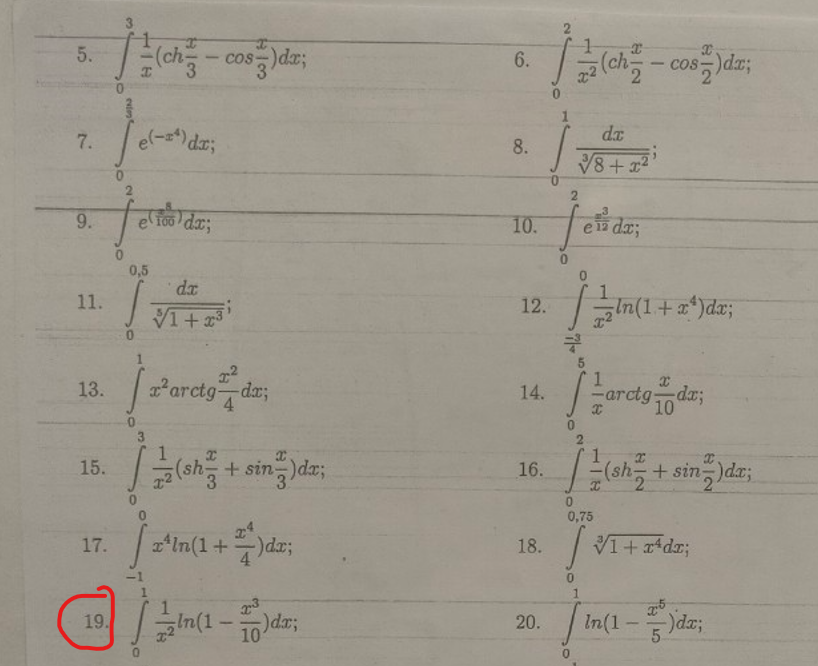 5. \int_{0}^{3} \frac{1}{x}(ch\frac{x}{3} - cos\frac{x}{3})dx;
6. \int_{0}^{2} \frac{1}{x^2}(ch\frac{x}{2} - cos\frac{x}{2})dx;
7. \int_{0}^{\frac{2}{3}} e^{(-x^4)}dx;
8. \int_{0}^{1} \frac{dx}{\sqrt[3]{8 + x^2}};
9. \int_{0}^{2} e^{(\frac{x^8}{100})}dx;
10. \int_{0}^{2} e^{\frac{x^3}{12}}dx;
11. \int_{0}^{0,5} \frac{dx}{\sqrt[5]{1 + x^3}};
12. \int_{\frac{-3}{4}}^{0} \frac{1}{x^2}ln(1 + x^4)dx;
13. \int_{0}^{1} x^2arctg\frac{x^2}{4}dx;
14. \int_{0}^{5} \frac{1}{x}arctg\frac{x}{10}dx;
15. \int_{0}^{3} \frac{1}{x^2}(sh\frac{x}{3} + sin\frac{x}{3})dx;
16. \int_{0}^{2} \frac{1}{x}(sh\frac{x}{2} + sin\frac{x}{2})dx;
17. \int_{-1}^{0} x^4ln(1 + \frac{x^4}{4})dx;
18. \int_{0}^{0,75} \sqrt[3]{1 + x^4}dx;
19. \int_{0}^{1} \frac{1}{x^2}ln(1 - \frac{x^3}{10})dx;
20. \int_{0}^{1} ln(1 - \frac{x^5}{5})dx;